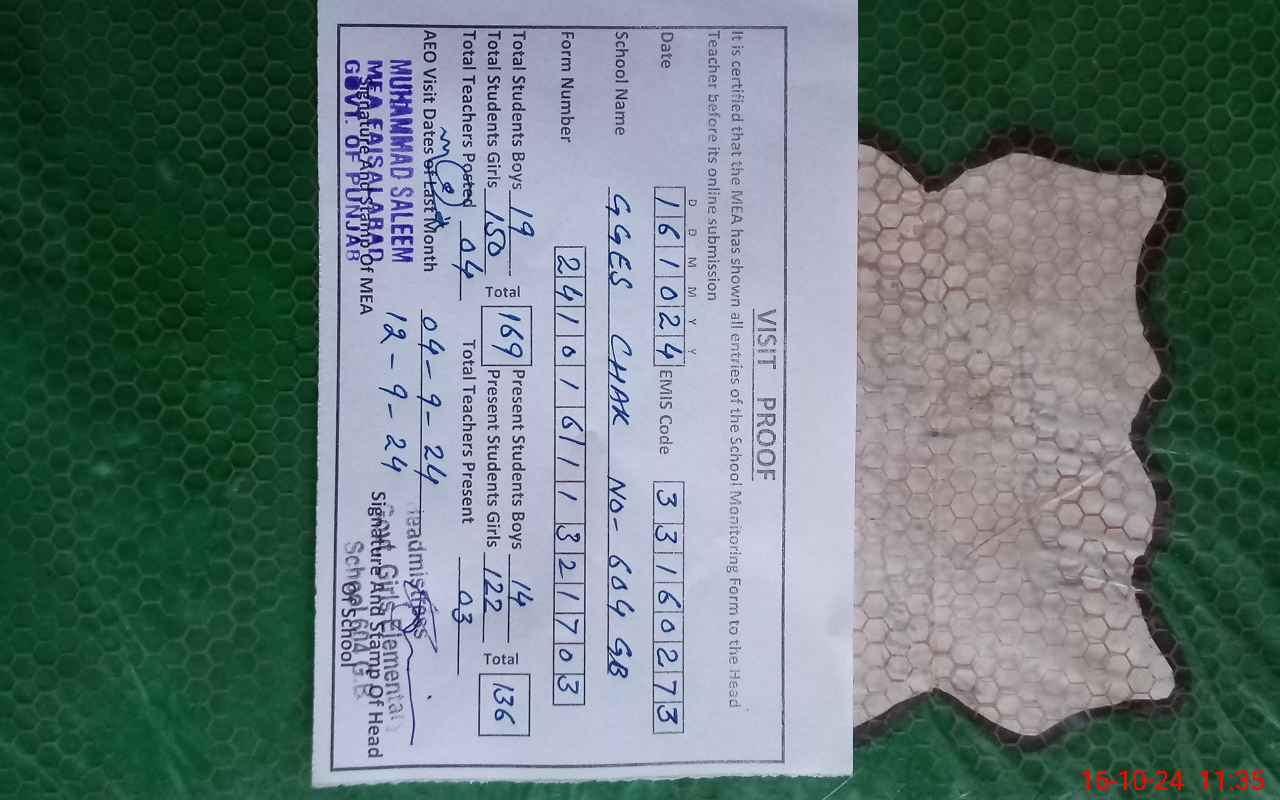 VISIT PROOF
It is certified that the MEA has shown all entries of the School Monitoring Form to the Head
Teacher before its online submission
D D M M Y Y
Date 161024 EMIS Code 33160273
School Name GGES CHAK NO- 604 GB
Form Number 24101611321703
Total Students Boys 19 Total 169 Present Students Boys 14 Total 136
Total Students Girls 150 Present Students Girls 122
Total Teachers Posted 04 Total Teachers Present 03
AEO Visit Dates of Last Month 04-9-24
12-9-24
MUHAMMAD SALEEM
MEA FAISALABAD
GOVT. OF PUNJAB
Signature And Stamp Of MEA
Headmistress
Govt Girls Elementary
School 604 G.B
Signature And Stamp Of Head
Of School
16-10-24 11:35